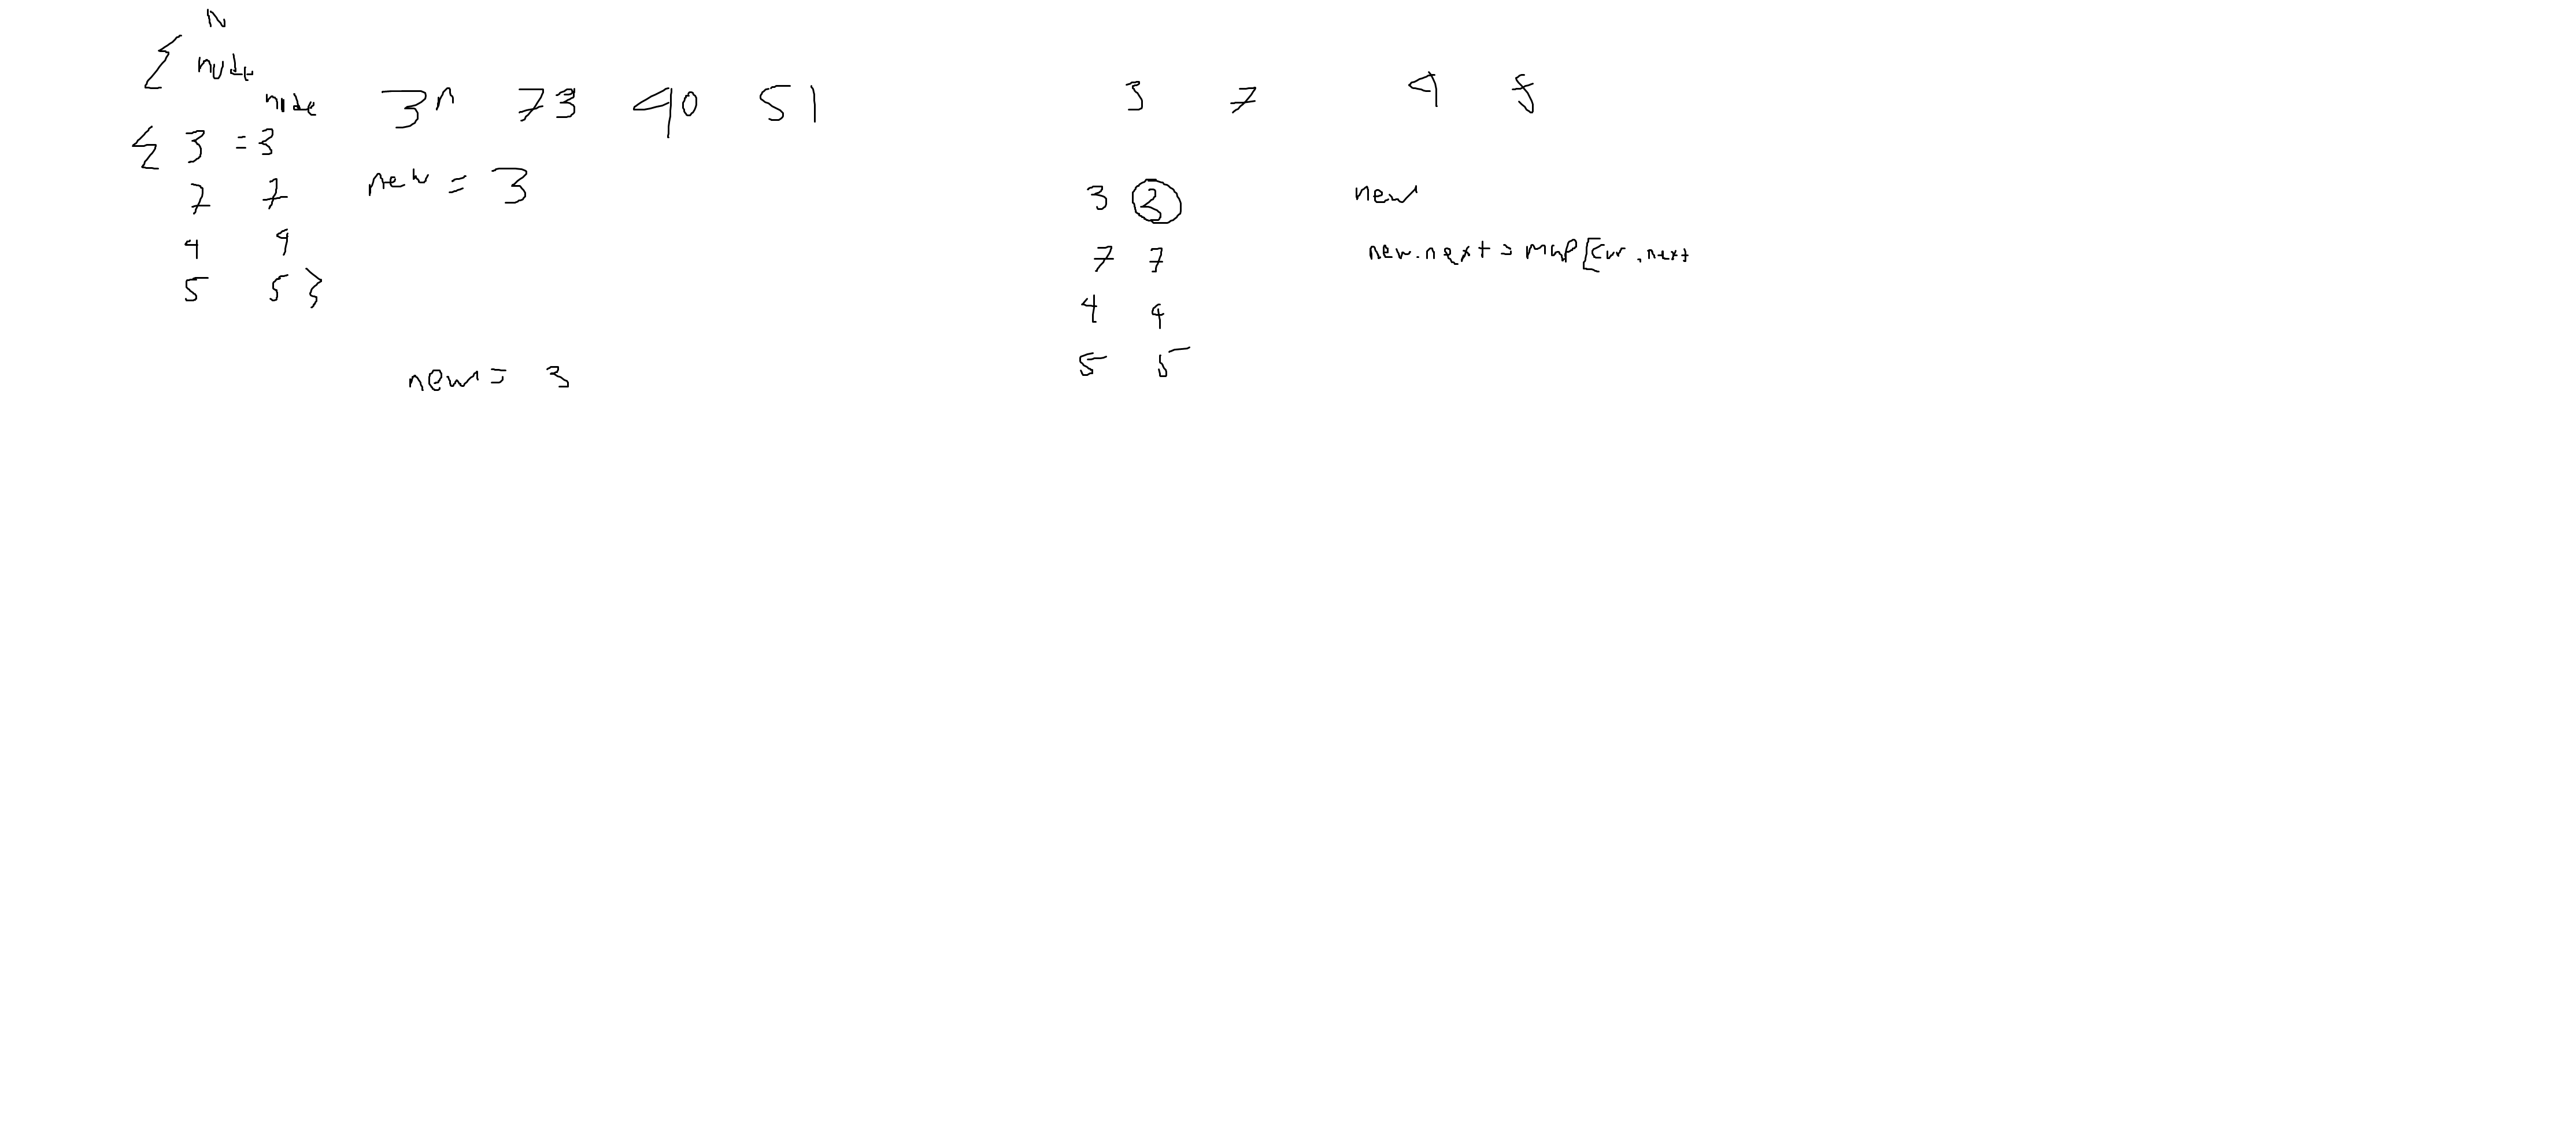 N
{ node
node 3n 73 40 51
{ 3 = 3
7 7
4 4
5 5 }
new = 3
new = 3
3 7 4 5
3 3
7 7
4 4
5 5
new
new.next = map[cur.next